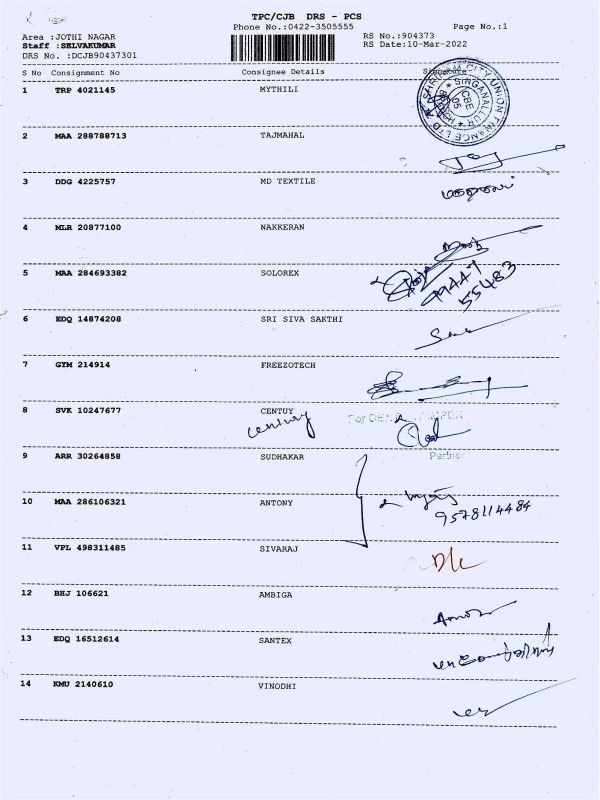 TPC/CJB DRS - PCS
Phone No.:0422-3505555 Page No.:1
Area :JOTHI NAGAR RS No.:904373
Staff :SELVAKUMAR RS Date:10-Mar-2022
DRS No. :DCJB90437301
S No Consignment No Consignee Details Signature
1 TRP 4021145 MYTHILI
SHRIRAM CITY UNION FINANCE LTD
SINGANALLUR BRANCH
CBE
05
2 MAA 288788713 TAJMAHAL
3 DDG 4225757 MD TEXTILE
4 MLR 20877100 NAKKERAN
5 MAA 284693382 SOLOREX
99447
55483
6 EDQ 14874208 SRI SIVA SAKTHI
7 GYM 214914 FREEZOTECH
8 SVK 10247677 CENTUY
century
For
Partner
9 ARR 30264858 SUDHAKAR
10 MAA 286106321 ANTONY
9578114484
11 VPL 498311485 SIVARAJ
D/c
12 BHJ 106621 AMBIGA
13 EDQ 16512614 SANTEX
14 KMU 2140610 VINODHI